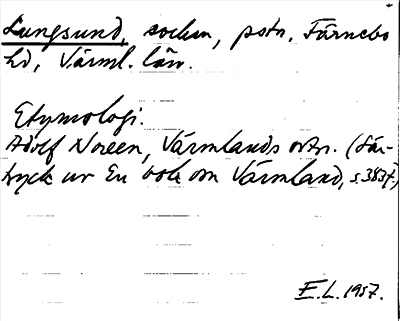 Lungsund, socken, pstn. Färnebo
hd, Värml. län.
Etymologi.
Adolf Noreen, Värmlands ortn. (Sär-
tryck ur En bok om Värmland, s. 383f.)
E.L. 1957.